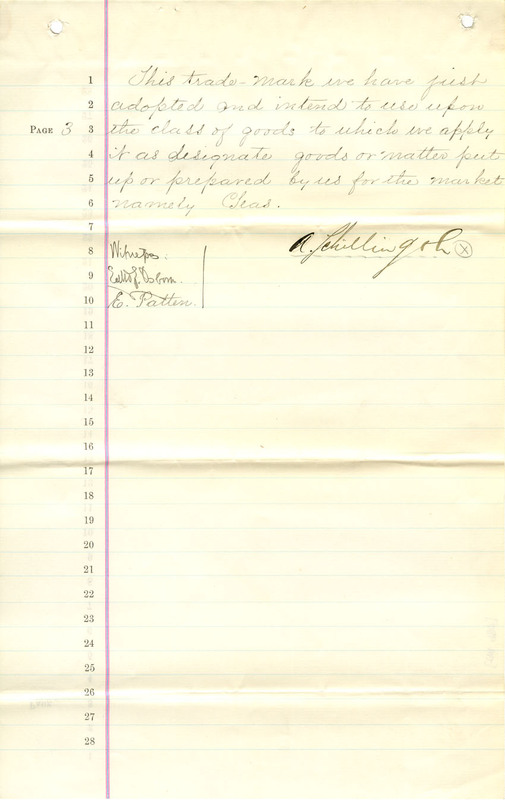 1 This trade-mark we have just
2 adopted and intend to use upon
PAGE 3 3 the class of goods to which we apply
4 it as designate goods or matter put
5 up or prepared by us for the market
6 namely Teas.
7
8 Witness. A. Schilling & Co. X
9 Osborn.
10 E. Patten.
11
12
13
14
15
16
17
18
19
20
21
22
23
24
25
26
27
28